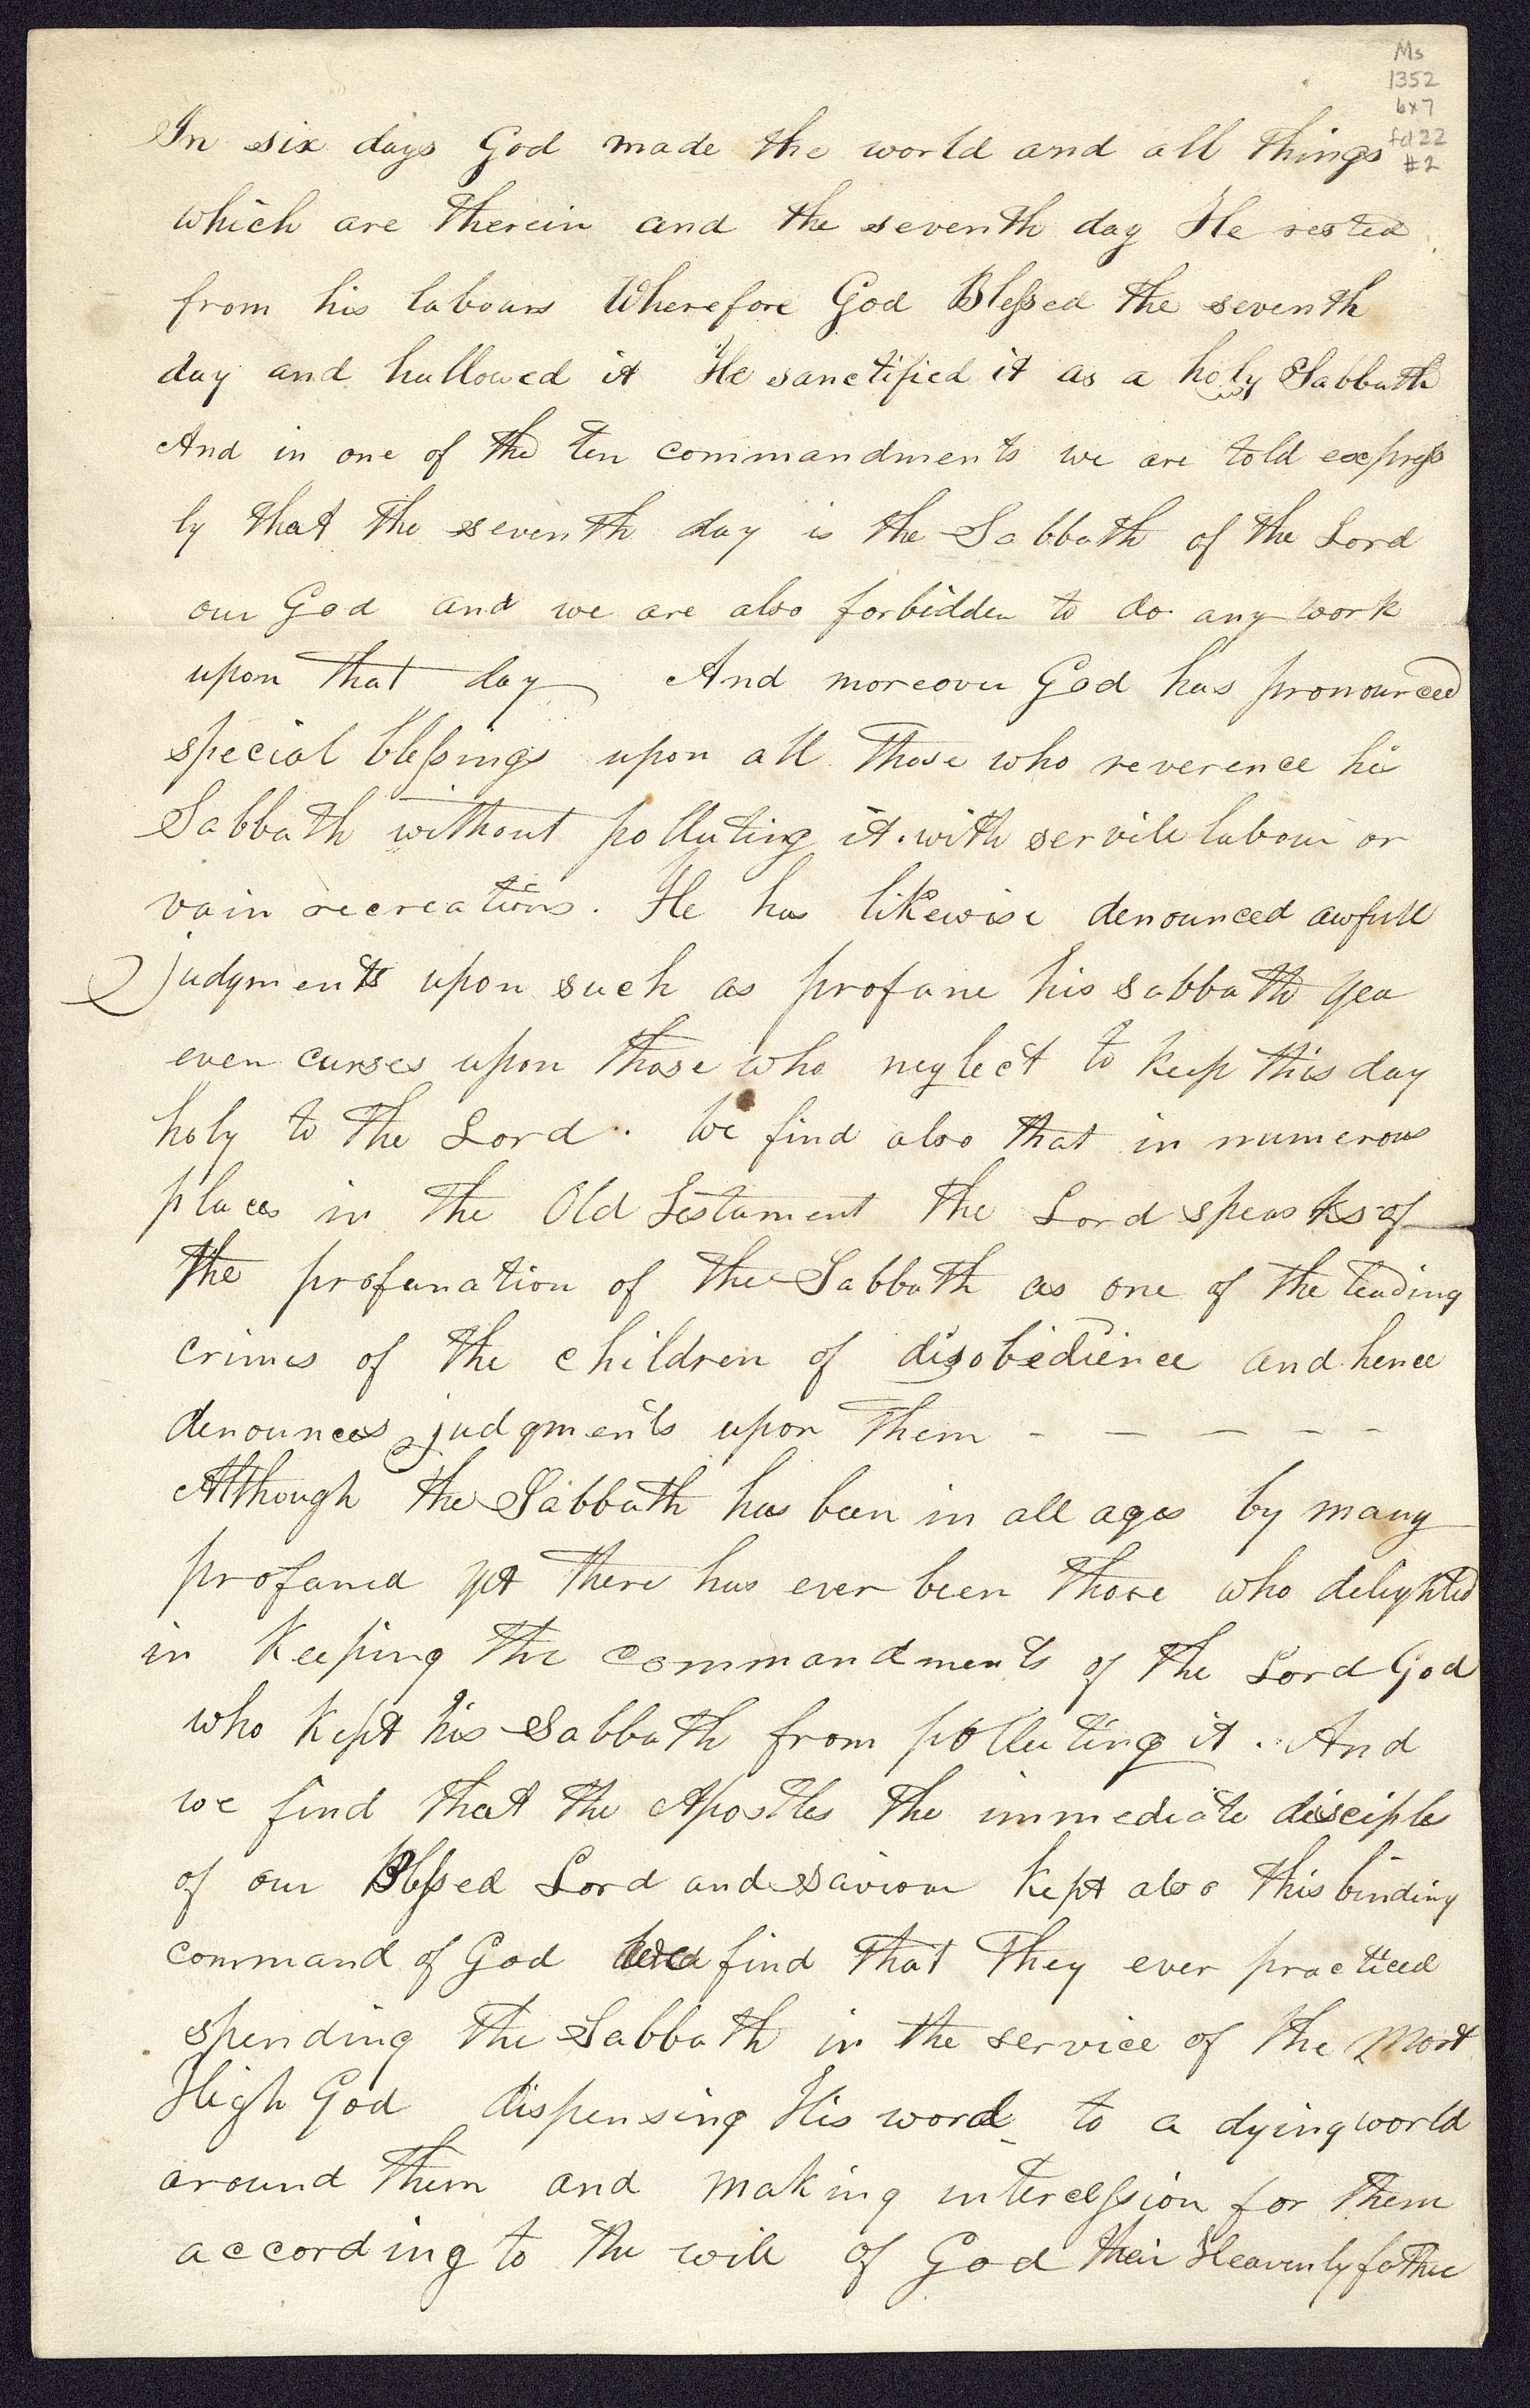 Ms
1352
bx7
fd 22
#2
In six days God made the world and all things
which are therein and the seventh day He rested
from his labours Wherefore God Blessed the seventh
day and hallowed it He sanctified it as a holy Sabbath
And in one of the ten commandments we are told express
ly that the seventh day is the Sabbath of the Lord
our God and we are also forbidden to do any work
upon that day And moreover God has pronounced
special blessings upon all those who reverence his
Sabbath without polluting it with servile labour or
vain recreations. He has likewise denounced awfull
judgments upon such as profane his sabbath yea
even curses upon those who neglect to keep this day
holy to the Lord. We find also that in numerous
places in the Old Testament the Lord speaks of
the profanation of the Sabbath as one of the leading
crimes of the children of disobedience and hence
denounces judgments upon them - - - - -
Although the Sabbath has been in all ages by many
profaned yet there has ever been those who delighted
in keeping the commandments of the Lord God
who kept his Sabbath from polluting it. And
we find that the Apostles the immediate disciples
of our Blessed Lord and Saviour kept also this binding
command of God find that they ever practiced
spending the Sabbath in the service of the Most
High God dispensing His word to a dying world
around them and making intercession for them
according to the will of God their Heavenly father